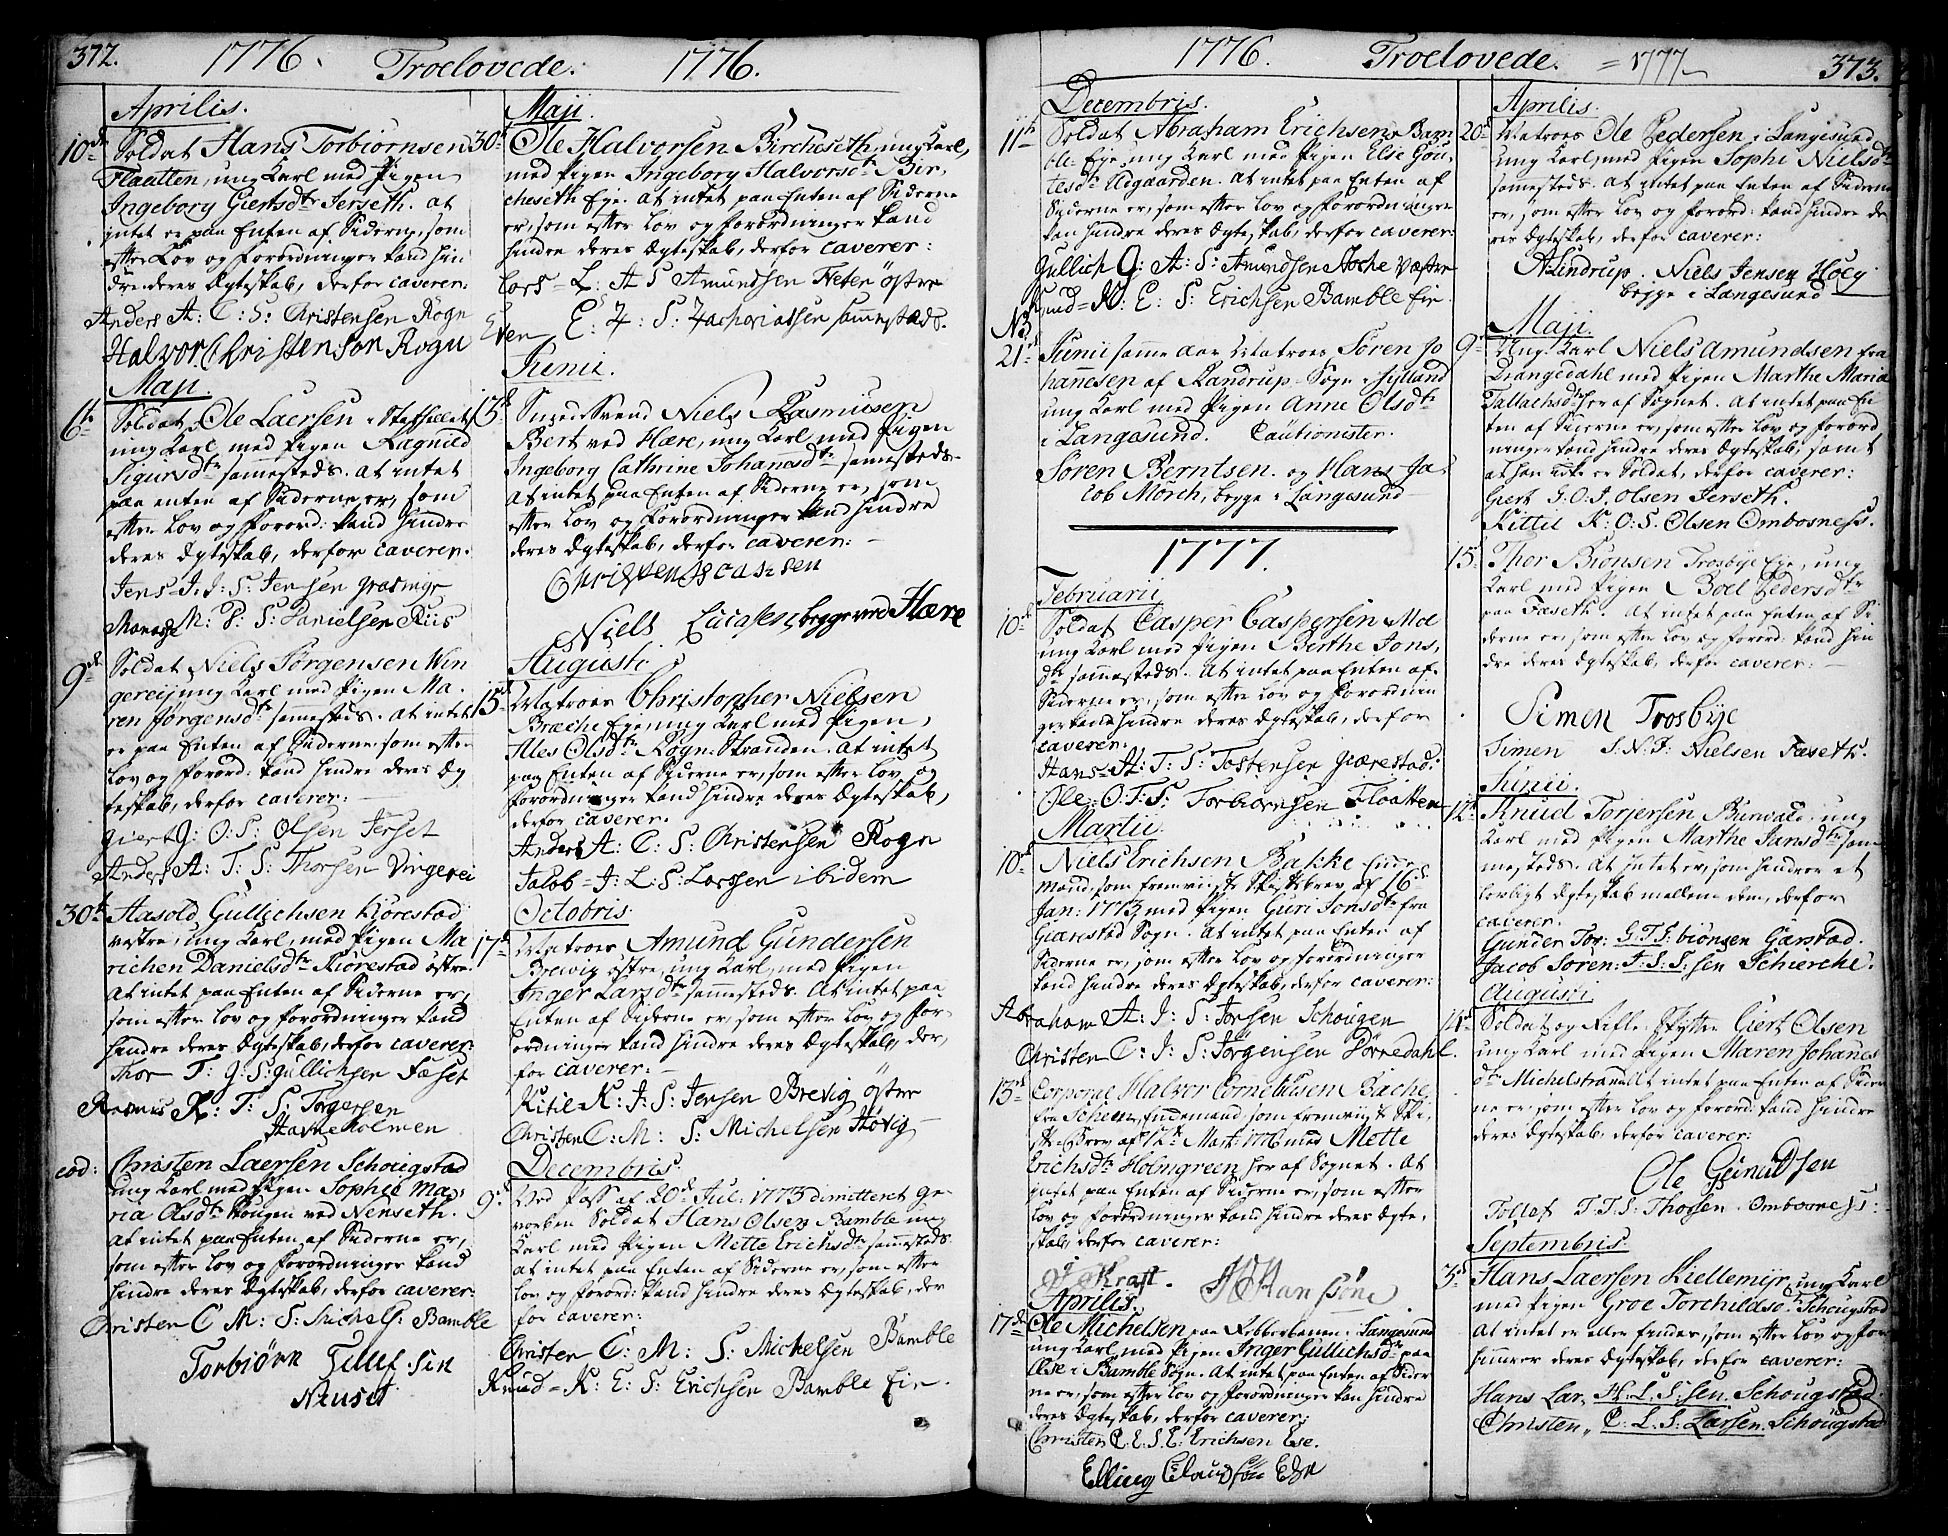 372.
1776. Troelovede. 1776.
Aprilis.
10de Soldat Hans Torbiørnsen
Flaatten, ung Karl med Pigen
Ingeborg Giertsdtr Jerseth. at
intet er paa Enten af Siderne, som
efter Lov og Forordninger kand hin
dre deres Ægteskab, derfor caverer:
Anders A: C: S: Christensen Rogn
Halvor Christenson Rogn
Maji.
6te Soldat Ole Laersen i
ung Karl med Pigen Ragnild
Sigursdtr samesteds. at intet
paa enten af Siderne er, som
efter Lov og Forord: kand hindre
deres Ægteskab, derfor caverer.
Jens J. J: S: Jensen Grasmyr
M: P: S: Danielsen Riis
9de Soldat Niels Jørgensen Vin
gereij ung Karl med Pigen Ma-
ren Jørgensdtr sammesteds. at intet
er paa Enten af Siderne som efter
Lov og Forord: kand hindre deres Æg
teskab, derfor caverer:
Giert G: O: S: Olsen Jerset
Anders A: T: S: Thorsen Vingerei
30te Aasold Gullichsen Kiørestad
vestre, ung Karl, med Pigen Ma
richen Danielsdtr Kiørestad østre.
at intet paa Enten af Siderne er,
som efter Lov og Forordninger kand
hindre deres Ægteskab, derfor caverer:
Thor T: G: S: Gullichsen Faset
Rasmus R: T: S: Torgersen
Havneholmen
eod: Christen Laersen Schougstad
ung Karl med Pigen Sophie Ma-
ria Olsdtr Skougen ved Nenseth.
at intet paa Enten af Siderne er,
som efter Lov og Forordninger kand
hindre deres Ægteskab, derfor caverer:
Christen C M: S: Michels: Bamble
Torbiørn Tellef sen
Nenset
Maji.
30te Ole Halvorsen Bircheseth, ung Karl,
med Pigen Ingeborg Halvorsdtr Bir,
cheseth Eje. at intet paa Enten af Siderne
er, som efter Lov og Forordninger kand
hindre deres Ægteskab, derfor caverer:
Lars L: A S Amundsen Feten østre
Even E: Z: S: Zachariassen sammesteds.
Junii.
13de Smede Svend Niels Rasmussen
Bert ved Hære, ung Karl med Pigen
Ingeborg Cathrine Johannesdtr samesteds.
at intet paa Enten af Siderne er, som
efter Lov og Forordninger kand hindre
deres Ægteskab, derfor caverer:
Christen
Niels Lucasen, begge ved Hære
Augusti
15de Matroes Christopher Nielsen
Brache Eje ung Karl med Pigen,
Ales Olsdtr Rogn-Stranden. at intet
paa Enten af Siderne er, som efter Lov og
Forordninger kand hindre deres Ægteskab,
derfor caverer.
Anders A: C: S: Christensen Rogn
Jacob J: L: S: Larssen ibidem
Octobris.
17de Matroes Amund Gundersen
Brevig østre, ung Karl, med Pigen
Inger Larsdtr sammesteds. At intet paa
Enten af Siderne er, som efter Lov og For-
ordninger kand hindre deres Ægteskab, der,
for caverer:
Kitil K: J: S: Jensen Brevig østre
Christen C: M: S: Michelsen Høvig
Decembris.
9de Ved Pass af 20de Jul: 1773 dimitteret ge-
vorben Soldat Hans Olsen Bamble ung
Karl med Pigen Mette Erichsdtr sammesteds.
at intet paa Enten af Siderne er, som efter
Lov og Forord: kand hindre deres Ægteskab, der
for caverer:
Christen C: M: S: Michelsen Bamble
Knud K: E: S: Erichsen Bamble Eie.
1776. Troelovede. = 1777. 373.
Decembris.
11te Soldat Abraham Erichsen Bam
ble Eje, ung Karl med Pigen Elie Gou-
tesdtr Udgaarden. At intet paa Enten af
Siderne er, som efter Lov og Forordninger
kan hindre deres Ægteskab, derfor caverer:
Gullich G: A: S: Amundsen Aache Vestre
Knud K: E: S: Erichsen Bamble Eie.
NB
21de Junii samme aar Matroes Søren Jo
hannesen af Randrup Sogn i Jylland
ung Karl med Pigen Anne Olsdtr
i Langesund. Cautionister.
Søren Berntsen og Hans Ja-
cob Mørch, begge i Langesund
1777.
Februarii
10de Soldat Casper Caspersen Moe
ung Karl med Pigen Berthe Jons,
dtr sammesteds. At intet paa Enten af
Siderne er, som efter Lov og Forordnin
ger kand hindre deres Ægteskab, derfor
caverer.
Hans H: T: S: Tostensen Giærestad.
Ole O: T: S: Torbiørnsen Floatten
Martii.
10de Niels Erichsen Bakke Enke
mand, som fremviiste Skiftebrev af 16de
Jan: 1773 med Pigen Guri Jonsdtr fra
Giærestad Sogn. At intet paa Enten af
Siderne er, som efter Lov og Forordninger
kand hindre deres Ægteskab, derfor caverer:
Abraham A: J: S: Jorsen Schougen
Christen C: J: S: Jørgensen Tørnedahl.
13de Corporal Halvor Corneliisen Bache
fra Scheen, Enkemand, som fremviiste Ski,
fte Brev af 12te Marti 1776 med Mette
Erichsdtr Holmgreen her af Sognet. At
intet paa Enten af Siderne er, som efter
Lov og Forordninger kand hindre deres Ægte,
skab, derfor caverer:
J Kraft. H Hansøne
Aprilis.
17de Ole Michelsen paa Robberbanen i Langesund
ung Karl med Pigen Inger Gullichsdtr paa
Ese i Bamble Sogn. At intet paa Enten af Sider
ne er, som efter Lov og Forordninger kan hindre
deres Ægteskab, derfor caverer:
Christen C. E. S. E: Erichsen Ese.
Elling Claudsøn Ese
Aprilis.
20de Matroes Ole Pedersen i Langesund
ung Karl, med Pigen Sophi Nielsdtr
sammesteds. at intet paa Enten af Siderne
er, som efter Lov og Forord: kand hindre de
res Ægteskab, derfor caverer:
A Lindrup. Niels Jensen Høeg
begge i Langesund
Maji.
9de Ung Karl Niels Amundsen fra
Drangedahl med Pigen Marthe Maria
Tallachsdtr her af Sognet. At intet paa En
ten af Siderne er, som efter Lov og Forord
ninger kand hindre deres Ægteskab, samt
at han icke er Soldat, derfor caverer:
Giert G. O. S. Olsen Jerseth.
Kittil K: O: S. Olsen Ombosness.
15de Thor Biønsen Trosbye Eje, ung
Karl med Pigen Boel Pedersdtr
paa Faseth. At intet paa Enten af Si
derne er, som efter Lov og Forord: kand hin
dre deres Ægteskab, derfor caverer:
Simen Trosbye
Simen S. N. S: Nielsen Faseth.
Junii.
12te Knud Torjersen Bunvald ung
Karl med Pigen Marthe Jansdtr sam
mesteds. At intet er, som hindrer et
lovligt Ægteskab mellem dem, derfor
caverer.
Gunder Tor: G. T. S: biønsen Gierstad.
Jacob Søren: J: S: S: sen Schierche.
Augusti
14de Soldat og Rifle Skytter Giert Olsen
ung Karl med Pigen Maren Johanes
dtr Michelstrand. At intet paa Enten af Sider
ne er, som efter Lov og Forord: kand hindre
deres Ægteskab, derfor caverer:
Ole Gunudsen
Tollef T. T. S: Thorsen Ombosness:
Septembris.
3de Hans Laersen Kiellemyr, ung Karl
med Pigen Groe Torchildsdtr Schougstad
At intet er eller findes, som efter Lov og For-
hindrer deres Ægteskab, derfor caverer:
Hans Lar. H: L. S: sen. Schougstad.
Christen, C. L. S: Larsen. Schougstad